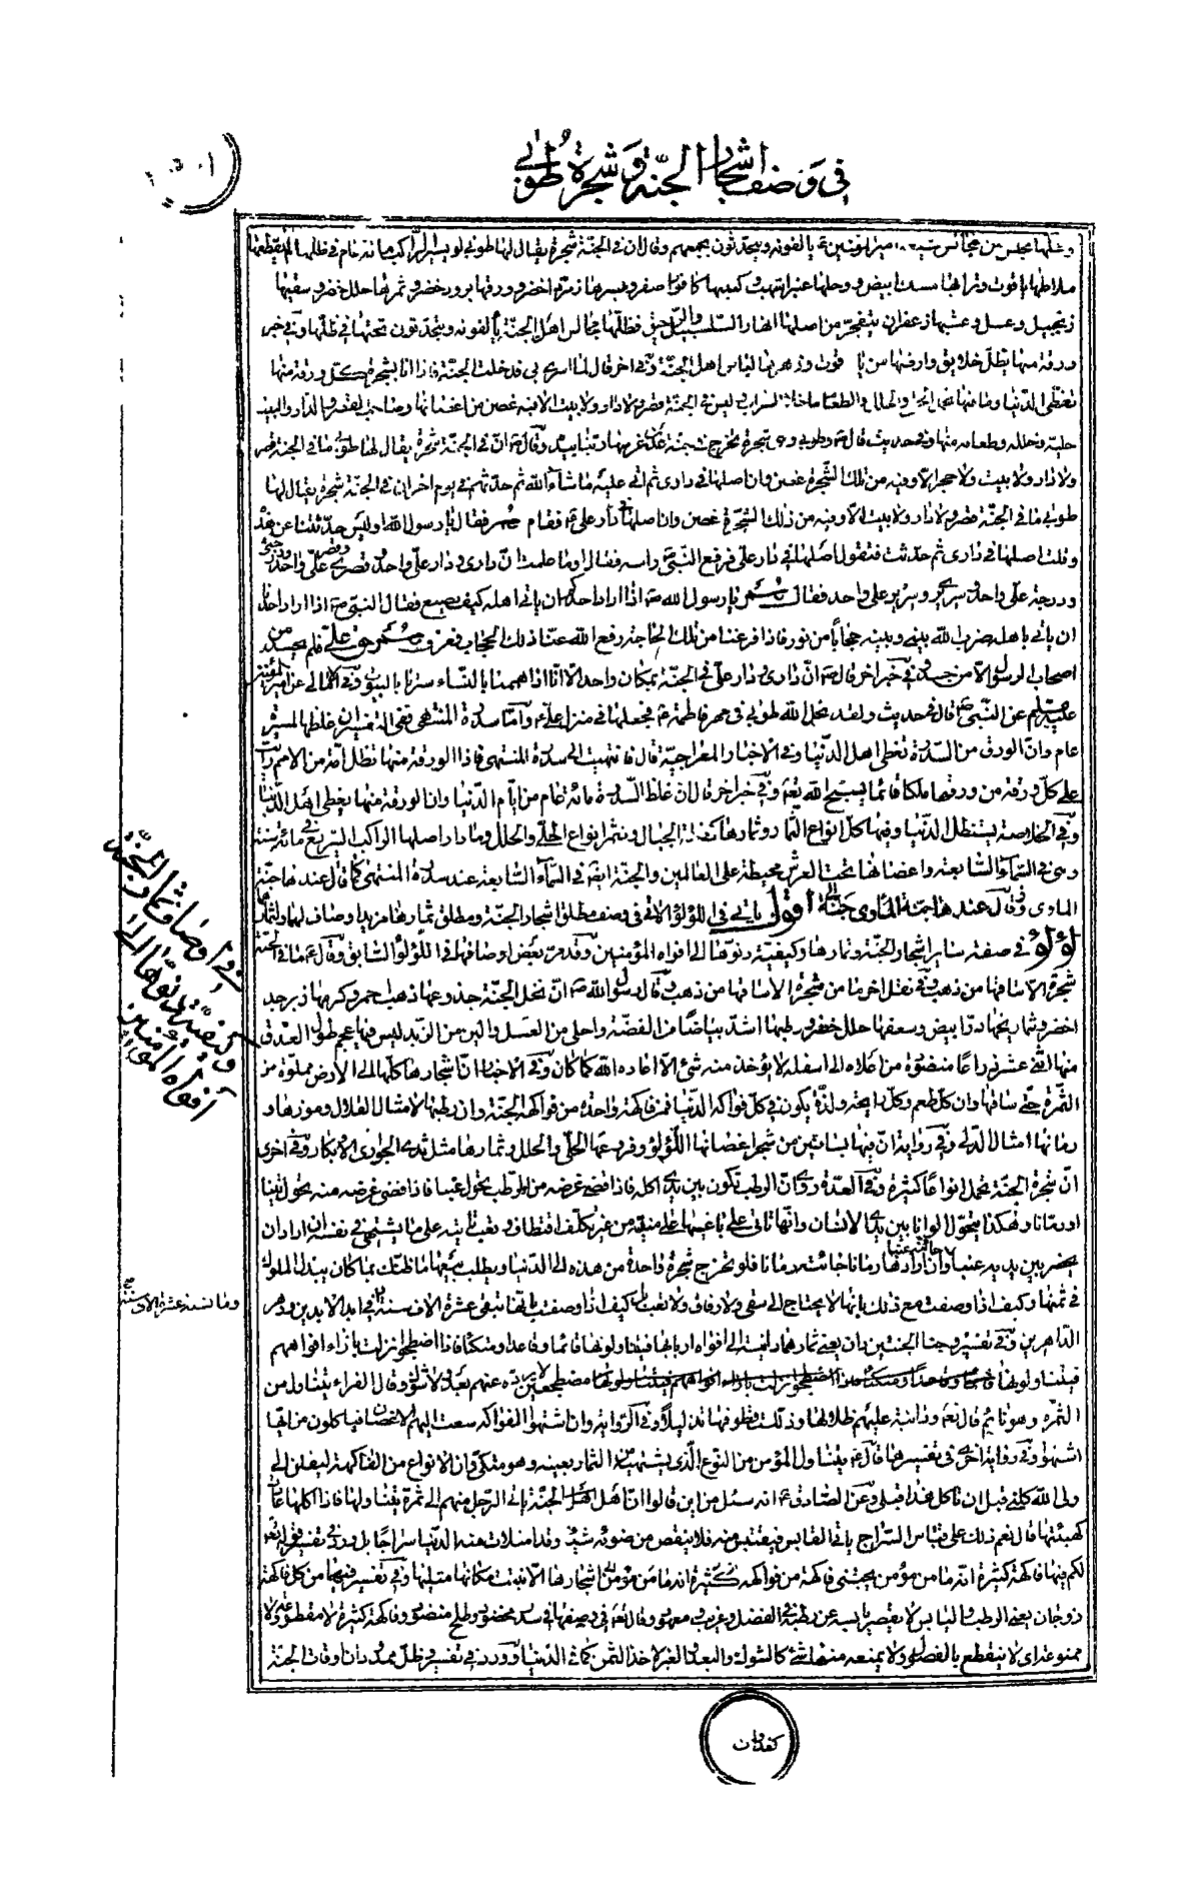 في وصف اشجار الجنة و شجرة طوبى
وظلها مجلس من مجالس شيعة امير المؤمنين ع يالفونه ويتحدثون بجمعهم وقال ان في الجنة شجرة يقال لها طوبى لو يسير الراكب مائة عام في ظلها لم يقطعها
ياقوت وترابها مسك ابيض ووحلها عنبر اشهب وكثيبها كافور اصفر وبسرها زمرد اخضر وورقها برود خضر وثمرتها حلل خضر وسقيها
زنجبيل وعسل وعشبها زعفران يتفجر من اصلها انهار السلسبيل والرحيق فظلها مجالس اهل الجنة يالفونه ويتحدثون تحتها في ظلها وفي خبر
ورقة منها يظل خلايق وارضها من ياقوت وزهرتها لباس اهل الجنة وفي اخر قال لما اسري بي قد دخلت الجنة فاذا انا بشجرة كل ورقة منها
تغطي الدنيا وما فيها تحمل الحلي والحلل والطعام ماخلا الشراب ليس في الجنة قصر ولا دار ولا بيت الا فيه غصن من اغصانها وصاحب القصر والدار والبيت
حليه وحلله وطعامه منها وفي حديث قال ص وطوبى وهي شجرة تخرج من جنة عدن غرسها ربنا بيده وقال ص ان في الجنة شجرة يقال لها طوبى ما في الجنة قصر
ولا دار ولا بيت ولا حجر الا وفيه من تلك الشجرة غصن وان اصلها في داري ثم اتى عليه ما شاء الله ثم حدثهم في يوم اخر ان في الجنة شجرة يقال لها
طوبى ما في الجنة قصر ولا دار ولا بيت الا وفيه من ذلك الشجرة غصن وان اصلها في دار علي ع فقام عمر فقال يا رسول الله اوليس حدثتنا عن هذه
وقلت اصلها في داري ثم حدثت فتقول اصلها في دار علي فرفع النبي ص راسه فقال او ما علمت ان داري ودار علي واحد وقصري وقصر علي واحد
ودرجة علي واحد وسريري وسرير علي واحد فقال عمر يا رسول الله ص اذا اراد احدكم ان ياتي اهله كيف يصنع فقال النبي ص اذا اراد احدنا
ان ياتي باهله ضرب الله بيني وبينه حجابا من نور فاذا فرغنا من تلك الحاجة رفع الله عنا ذلك الحجاب فعرف عمر حق علي فلم يحسد
اصحاب الرسول الا من حسده وفي خبر اخر قال ص ان داري ودار علي في الجنة بمكان واحد الا انا اذا هممنا بالنساء سترنا بالبيوت وفي الامالي عن امير المؤمنين
عليه السلم عن النبي ص قال في حديث ولقد نحل الله طوبى في مهر فاطمة ع فجعلها في منزل علي ع واما سدرة المنتهى ففي التفسير ان غلظها لمسيرة
عام وان الورق من السدرة تغطي اهل الدنيا وفي الاخبار المعراجية قال فانتهيت الى سدرة المنتهى فاذا الورقة منها تظل امة من الامم رايت
على كل ورقة من ورقها ملكا قائما يسبح الله تع وفي خبر اخر قال ان غلظ السدرة مائة عام من ايام الدنيا وان الورقة منها يغطي اهل الدنيا
وفي الخلاصة يستظل الدنيا وفيها كل انواع الثمار
وهي في السماء السابعة واغصانها تحت العرش محيطة على العالمين والجنة ايضا في السماء السابعة عند سدرة المنتهى كما قال عندها جنة
الماوى وقال عندها جنة الماوى اقول ياتي في اللؤلؤ الاتي في وصف مطلق اشجار الجنة ومطلق ثمارها مزيد اوصاف لها ولثمارها
لؤلؤ في صفة ساير اشجار الجنة وثمارها وكيفية دنوها الى افواه المؤمنين وقد مر بعض اوصافها في اللؤلؤ السابق وقال ع ما في الجنة
شجرة الا ساقها من ذهب وفي نقل اخر ما من شجرة الا ساقها من ذهب وقال رسول الله ص ان نخل الجنة جذوعها ذهب احمر وكربها زبرجد
اخضر وشماريخها در ابيض وسعفها حلل خضر ورطبها اشد بياضا من الفضة واحلى من العسل والين من الزبد ليس فيها عجم طول العذق
منها اثنى عشر ذراعا منضودة من اعلاه الى اسفله لا يؤخذ منه شئ الا اعاده الله كما كان وفي الاخبار ان اشجارها كلها الى الارض مملوة من
الثمرة حتى ساقها وان كل طعم وكل رايحة ولذة يكون في كل فواكه الدنيا فهو في فاكهة واحدة من فواكه الجنة وان رطبها لامثال القلال وموزها و
رمانها امثال الدلي وفي رواية ان فيها بساتين من شجر اغصانها اللؤلؤ وفروعها الحلي والحلل وثمارها مثل ثدي الجواري الابكار وفي اخرى
ان شجرة الجنة تحمل انواعا كثيرة وفي العدة روي ان الرطب تكون بين يدي اكله فاذا قضى غرضه من الرطب يحول عنبا فاذا قضى غرضه منه يحول تينا
او رمانا وهكذا يتحول الوانا بين يدي الانسان وانها تاتي على ما يشتهي في نفسه ان اراد ان
يحضر بين يديه عنبا وان ارادها رمانا جائت رمانا فلو تخرج شجرة واحدة من هذه الى الدنيا ويطلب بيعها ما ظنك بما كان يبذل الملوك
في ثمنها وكيف اذا وصفت مع ذلك بانها لا يحتاج الى سقي ولا رفاق ولا تعب بل كيف اذا وصفت بانها تبقى عشرة الاف سنة في ابد الابدين ودهر
الداهرين وفي تفسير وجنا الجنتين دان يعني ثمارهما دانية الى افواه اربابها فيتناولونها قائما وقاعدا ومتكئا فاذا اضطجعوا نزلت بازاء افواههم
فيتناولونها مضطجعين لا يرده عنهم بعد ولا شوك وقال الفراء يتناول من
الثمرة وهو نايم قال تع ودانية عليهم ظلالها وذللت قطوفها تذليلا وفي الرواية وان اشتهوا الفواكه سعت اليهم الاغصان فياكلون من ايها
اشتهوا وفي رواية اخرى في تفسيرها قال ع يتناول المؤمن من النوع الذي يشتهيه من الثمار بعينه وهو متكئ وان الانواع من الفاكهة ليقلن الى
ولي الله كلني قبل ان تاكل هذا قبلي وعن الصادق ع انه سئل من اين قالوا ان اهل الجنة ياتي الرجل منهم الى ثمرة يتناولها فاذا اكلها عادت
كهيئتها قال نعم ذلك على قياس السراج ياتي القابس فيقتبس منه فلا ينقص من ضوئه شئ وقد امتلات منه الدنيا سراجا وورد في تفسير قوله تع
لكم فيها فاكهة كثيرة انه ما من مؤمن يجتني فاكهة من فواكه اشجارها الا نبت مكانها مثليها وفي تفسير فيهما من كل فاكهة
زوجان يعني الرطب واليابس لا يقصر يابسه عن رطبه في الفضل وغريب ومعهود وقال تع في وصفها في سدر مخضود وطلح منضود وفاكهة كثيرة لا مقطوعة ولا
ممنوعة اي لا ينقطع بالفصل ولا يمنعه منها شئ كالشوك والبعد والغير لاخذ الثمن كما في الدنيا وورد في تفسير وظل ممدود ان اوقات الجنة
في اوصاف ثمار الجنة
وكيفية دنوها الى
افواه المؤمنين
كغدوات